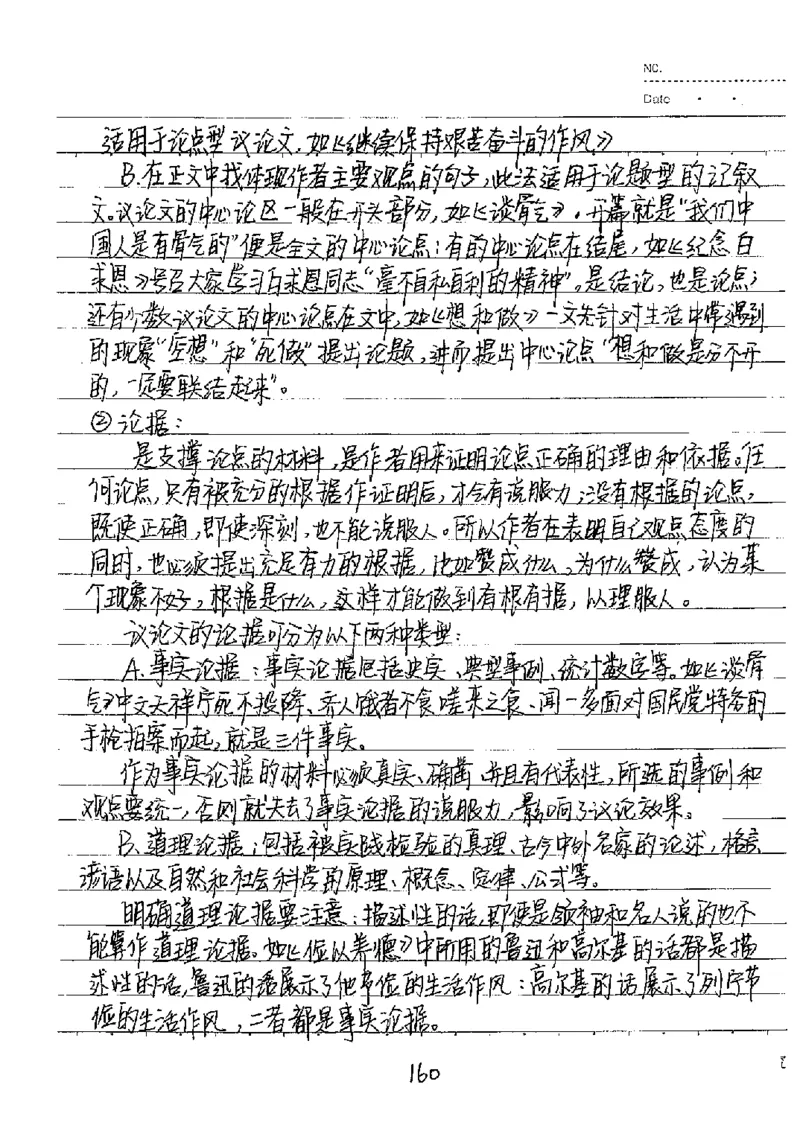 NO.
Date
适用于论点型议论文，如《继续保持艰苦奋斗的作风》
B.在正文中找体现作者主要观点的句子，此法适用于论题型的记叙
文。议论文的中心论区一般在开头部分，如《谈骨气》，开幕就是“我们中
国人是有骨气的”便是全文的中心论点；有的中心论点在结尾，如《纪念白
求恩》号召大家学习白求恩同志“毫不自私自利的精神”。是结论，也是论点；
还有少数议论文的中心论点在文中，如《想和做》一文先针对生活中常遇到
的现象“空想”和“死做”提出论题，进而提出中心论点“想和做是分不开
的，一定要联结起来”。
②论据：
是支撑论点的材料，是作者用来证明论点正确的理由和依据。任
何论点，只有被充分的根据作证明后，才会有说服力；没有根据的论点，
既使正确，即使深刻，也不能说服人。所以作者在表明自己观点态度的
同时，也必须提出充足有力的根据，比如赞成什么，为什么赞成，认为某
个现象不好，根据是什么，这样才能做到有根有据，以理服人。
议论文的论据可分为以下两种类型：
A.事实论据：事实论据包括史实、典型事例、统计数字等。如《谈骨
气》中文天祥宁死不投降、齐人饿者不食嗟来之食、闻一多面对国民党特务的
手枪拍案而起，就是三件事实。
作为事实论据的材料必须真实、确凿，并且有代表性，所选的事例和
观点要统一，否则就失去了事实论据的说服力，影响了议论效果。
B.道理论据：包括被实践检验的真理、古今中外名家的论述，格言
谚语以及自然和社会科学的原理、概念、定律、公式等。
明确道理论据要注意：描述性的话，即便是领袖和名人说的也不
能算作道理论据。如《俭以养德》中所用的鲁迅和高尔基的话都是描
述性的话，鲁迅的话展示了他节俭的生活作风；高尔基的话展示了列宁节
俭的生活作风，二者都是事实论据。
160